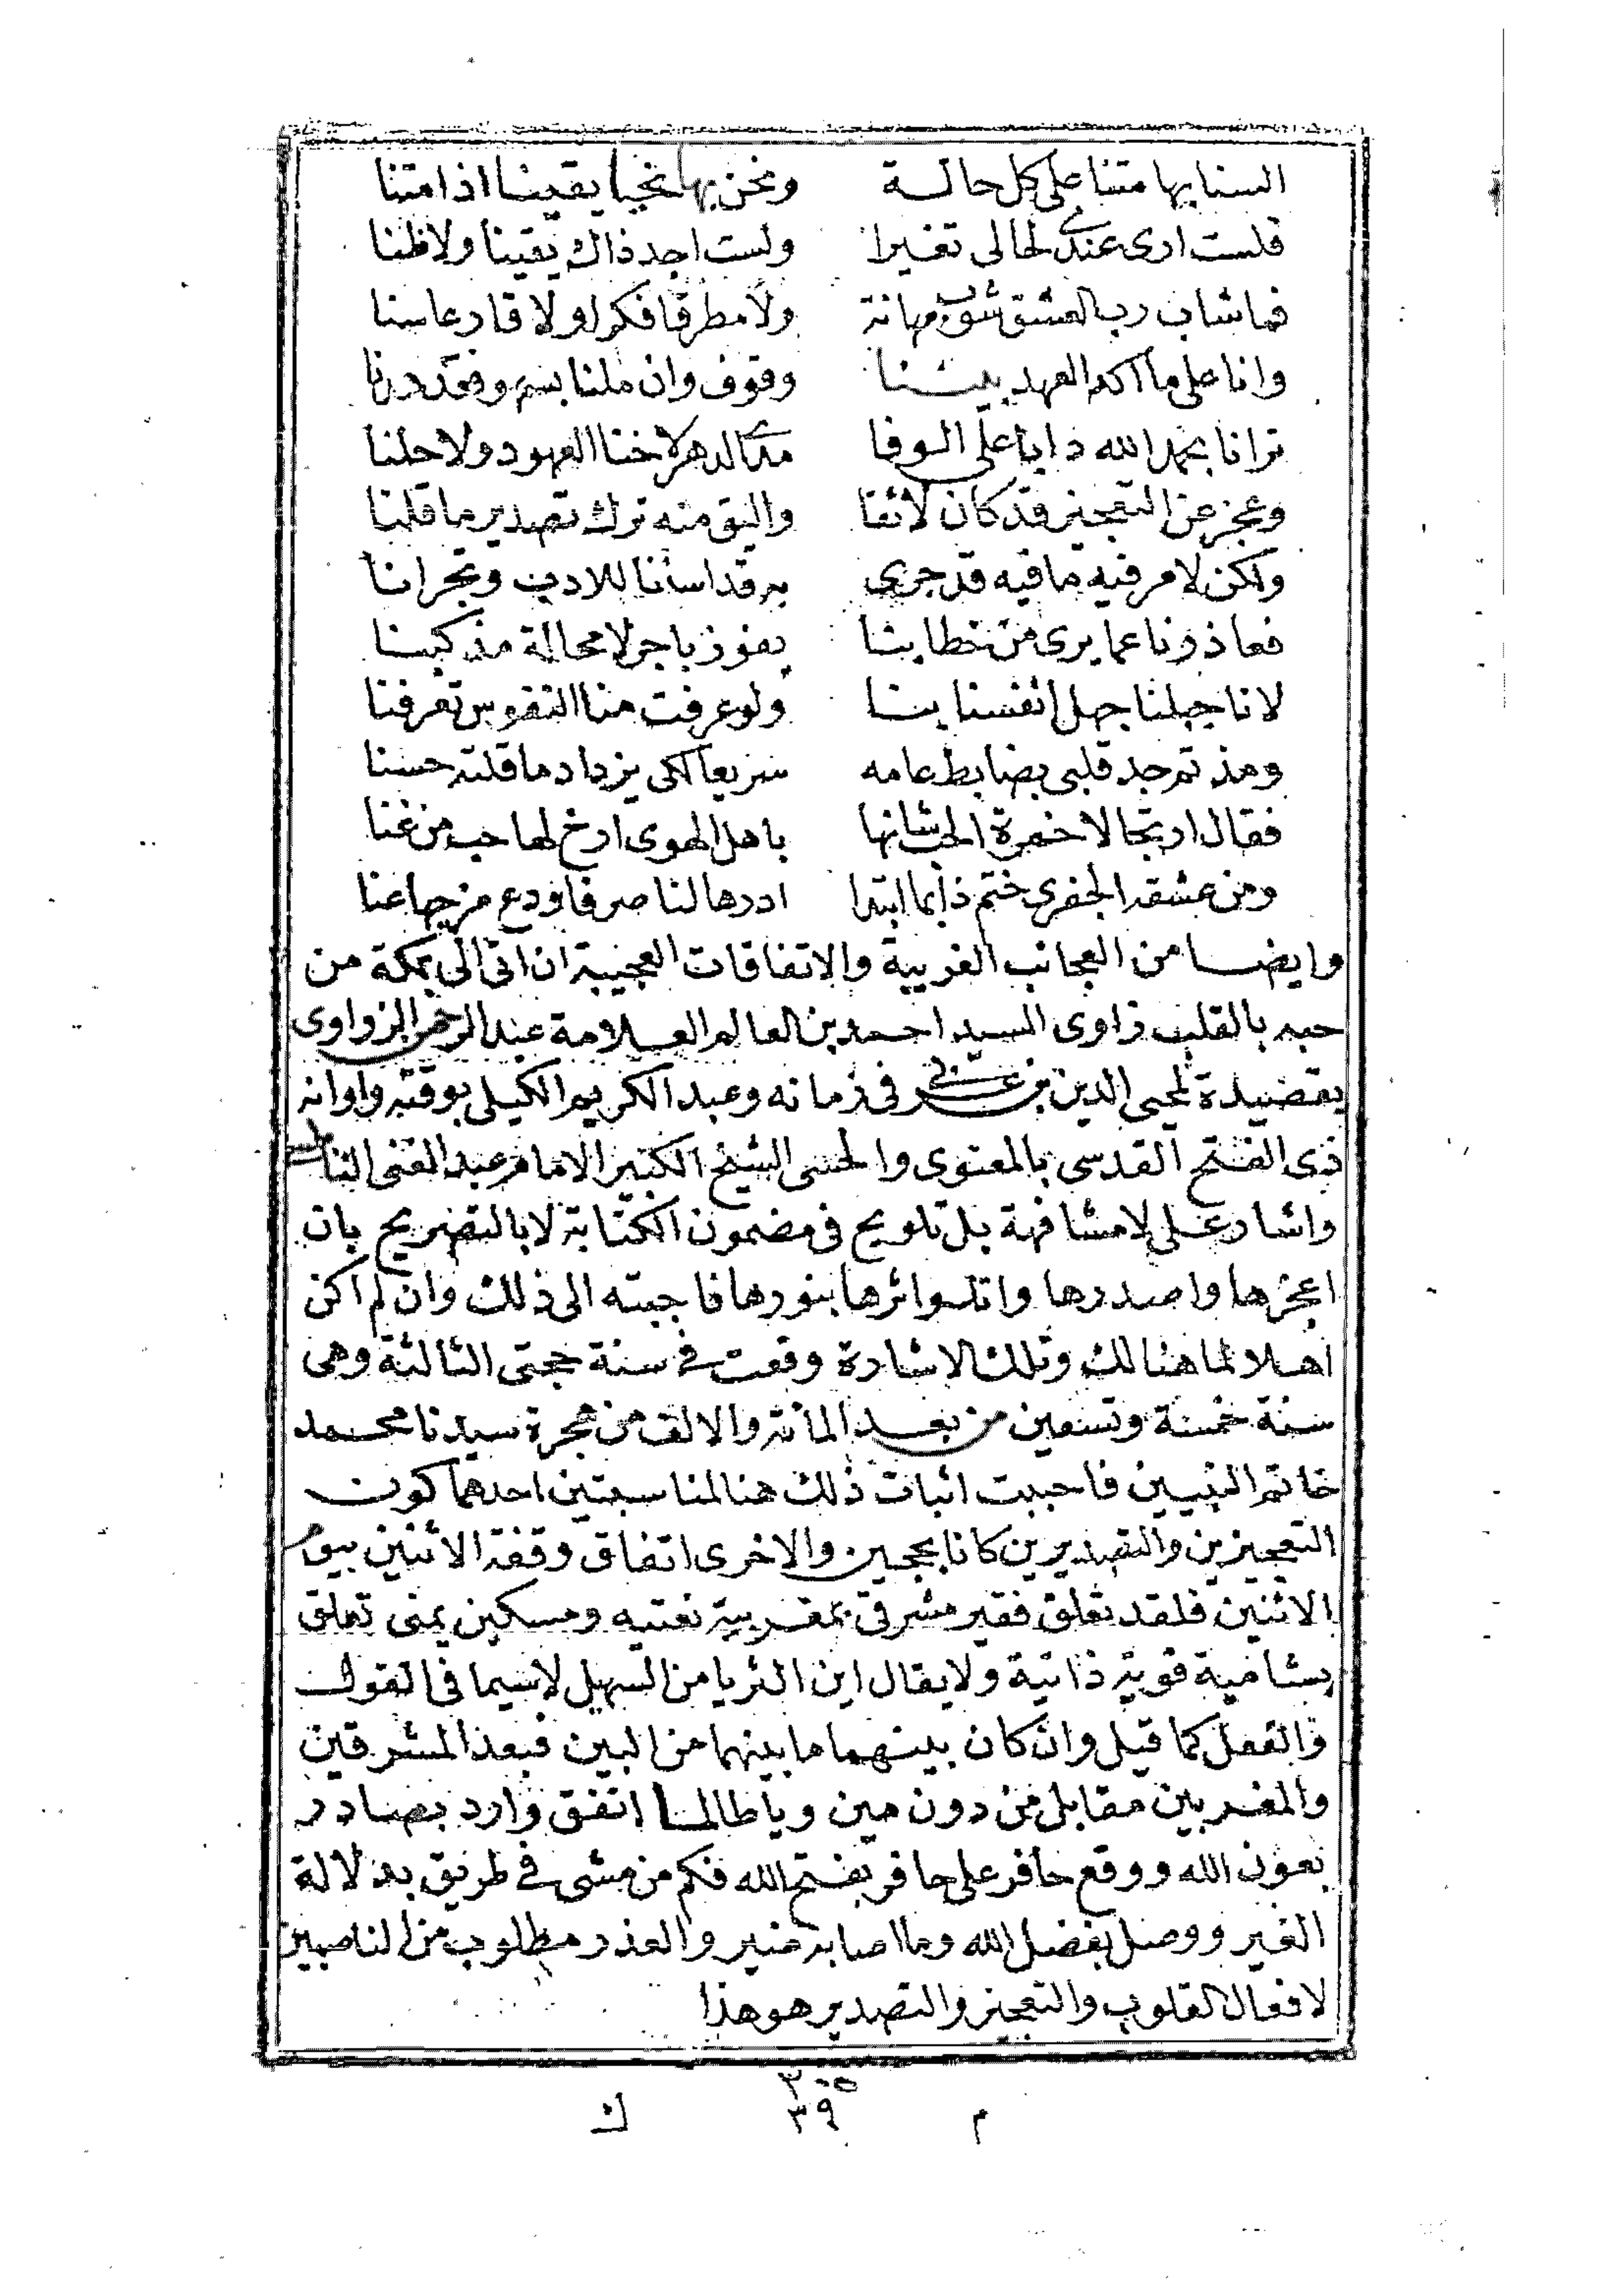 السنا بها متنا على كل حالة ونحن بها نحيا يقينا اذا متنا
فلست ارى عندي لحالى تغيرا ولست اجد ذاك يقينا ولا ظنا
فما شاب رب العشق شوب مهانة ولا مطرقا فكرا ولا قارعا سنا
وانا على ما اكد العهد بيننا وقوف وان ملنا بسم وقعددنا
ترانا بحمد الله دابا على الوفا مدى الدهر لا خنا العهود ولا حلنا
وعجز عن التعجيز قد كان لائقا واليق منه ترك تصدير ما قلنا
ولكن لامر فيه ما فيه قد جرى به قد اسأنا للاديب وتجرانا
فعاذرنا عما يرى من خطابنا يفوز باجر لا محالة مذ كبنا
لانا جبلنا جهل انفسنا بنا ولو عرفت منا النفوس تعرفنا
ومذ تم جد قلبى بضابط عامه سريعا لكى يزداد ما قلته حسنا
فقال ارتجالا خمرة الحب شانها باهل الهوى ارخ لها حب من غنا
ومن عشقه الجفرى ختم ذا بما ابتدا ادرها لنا صرفا ودع مزجها عنا
وايضا من العجائب الغريبة والاتفاقات العجيبة ان اتى الى بمكة من
حبه بالقلب زاوى السيد احمد بن العالم العلامة عبد الرحمن الزواوى
بقصيدة لمحيى الدين بن عربي فى زمانه وعبد الكريم الكيلى بوقته واوانه
ذى الفتح القدسى بالمعنوى والحسى الشيخ الكبير الامام عبد الغنى النابلسي
واشار على لا مشافهة بل تلويح فى مضمون الكتابة لا بالتصريح بان
اعجزها واصدرها واتلو اثرها بنورها فاجبته الى ذلك وان لم اكن
اهلا لما هنالك وتلك الاشارة وقعت فى سنة حجتى الثالثة وهى
سنة خمسة وتسعين من بعد المائة والالف من هجرة سيدنا محمد
خاتم النبيين فاحببت اثبات ذلك هنا لمناسبتين احدهما كون
التعجيزين والتصديرين كانا بحجين والاخرى اتفاق وقفة الاثنين بيوم
الاثنين فلقد تعلق فقير مشرقى بمغربية نعتيه ومسكين يمنى تعلق
بشامية قوية ذاتية ولا يقال اين الثريا من السهيل لاسيما فى القول
والفعل كما قيل وان كان بينهما ما بينهما من البين فبعد المشرقين
والمغربين مقابل من دون مين ويا طالما اتفق وارد بصادر
بعون الله ووقع حافر على حافر بفتح الله فكم من مشى فى طريق بدلالة
الغير ووصل بفضل الله وما اصابه ضير والعذر مطلوب من الناصبين
لافعال القلوب والتعجيز والتصدير هو هذا
٣٠٥
م ٣٩ ك